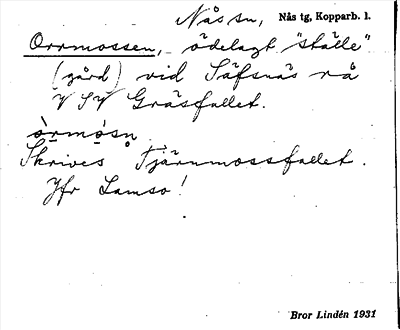 Nås sn, Nås tg, Kopparb. l.
Orrmossen, ödelagt "ställe"
(gård) vid Säfsnäs rå
V SV Gräsfallet.
òrmòsn
Skrives Tjärnmossfallet.
Jfr Lamso!
Bror Lindén 1931